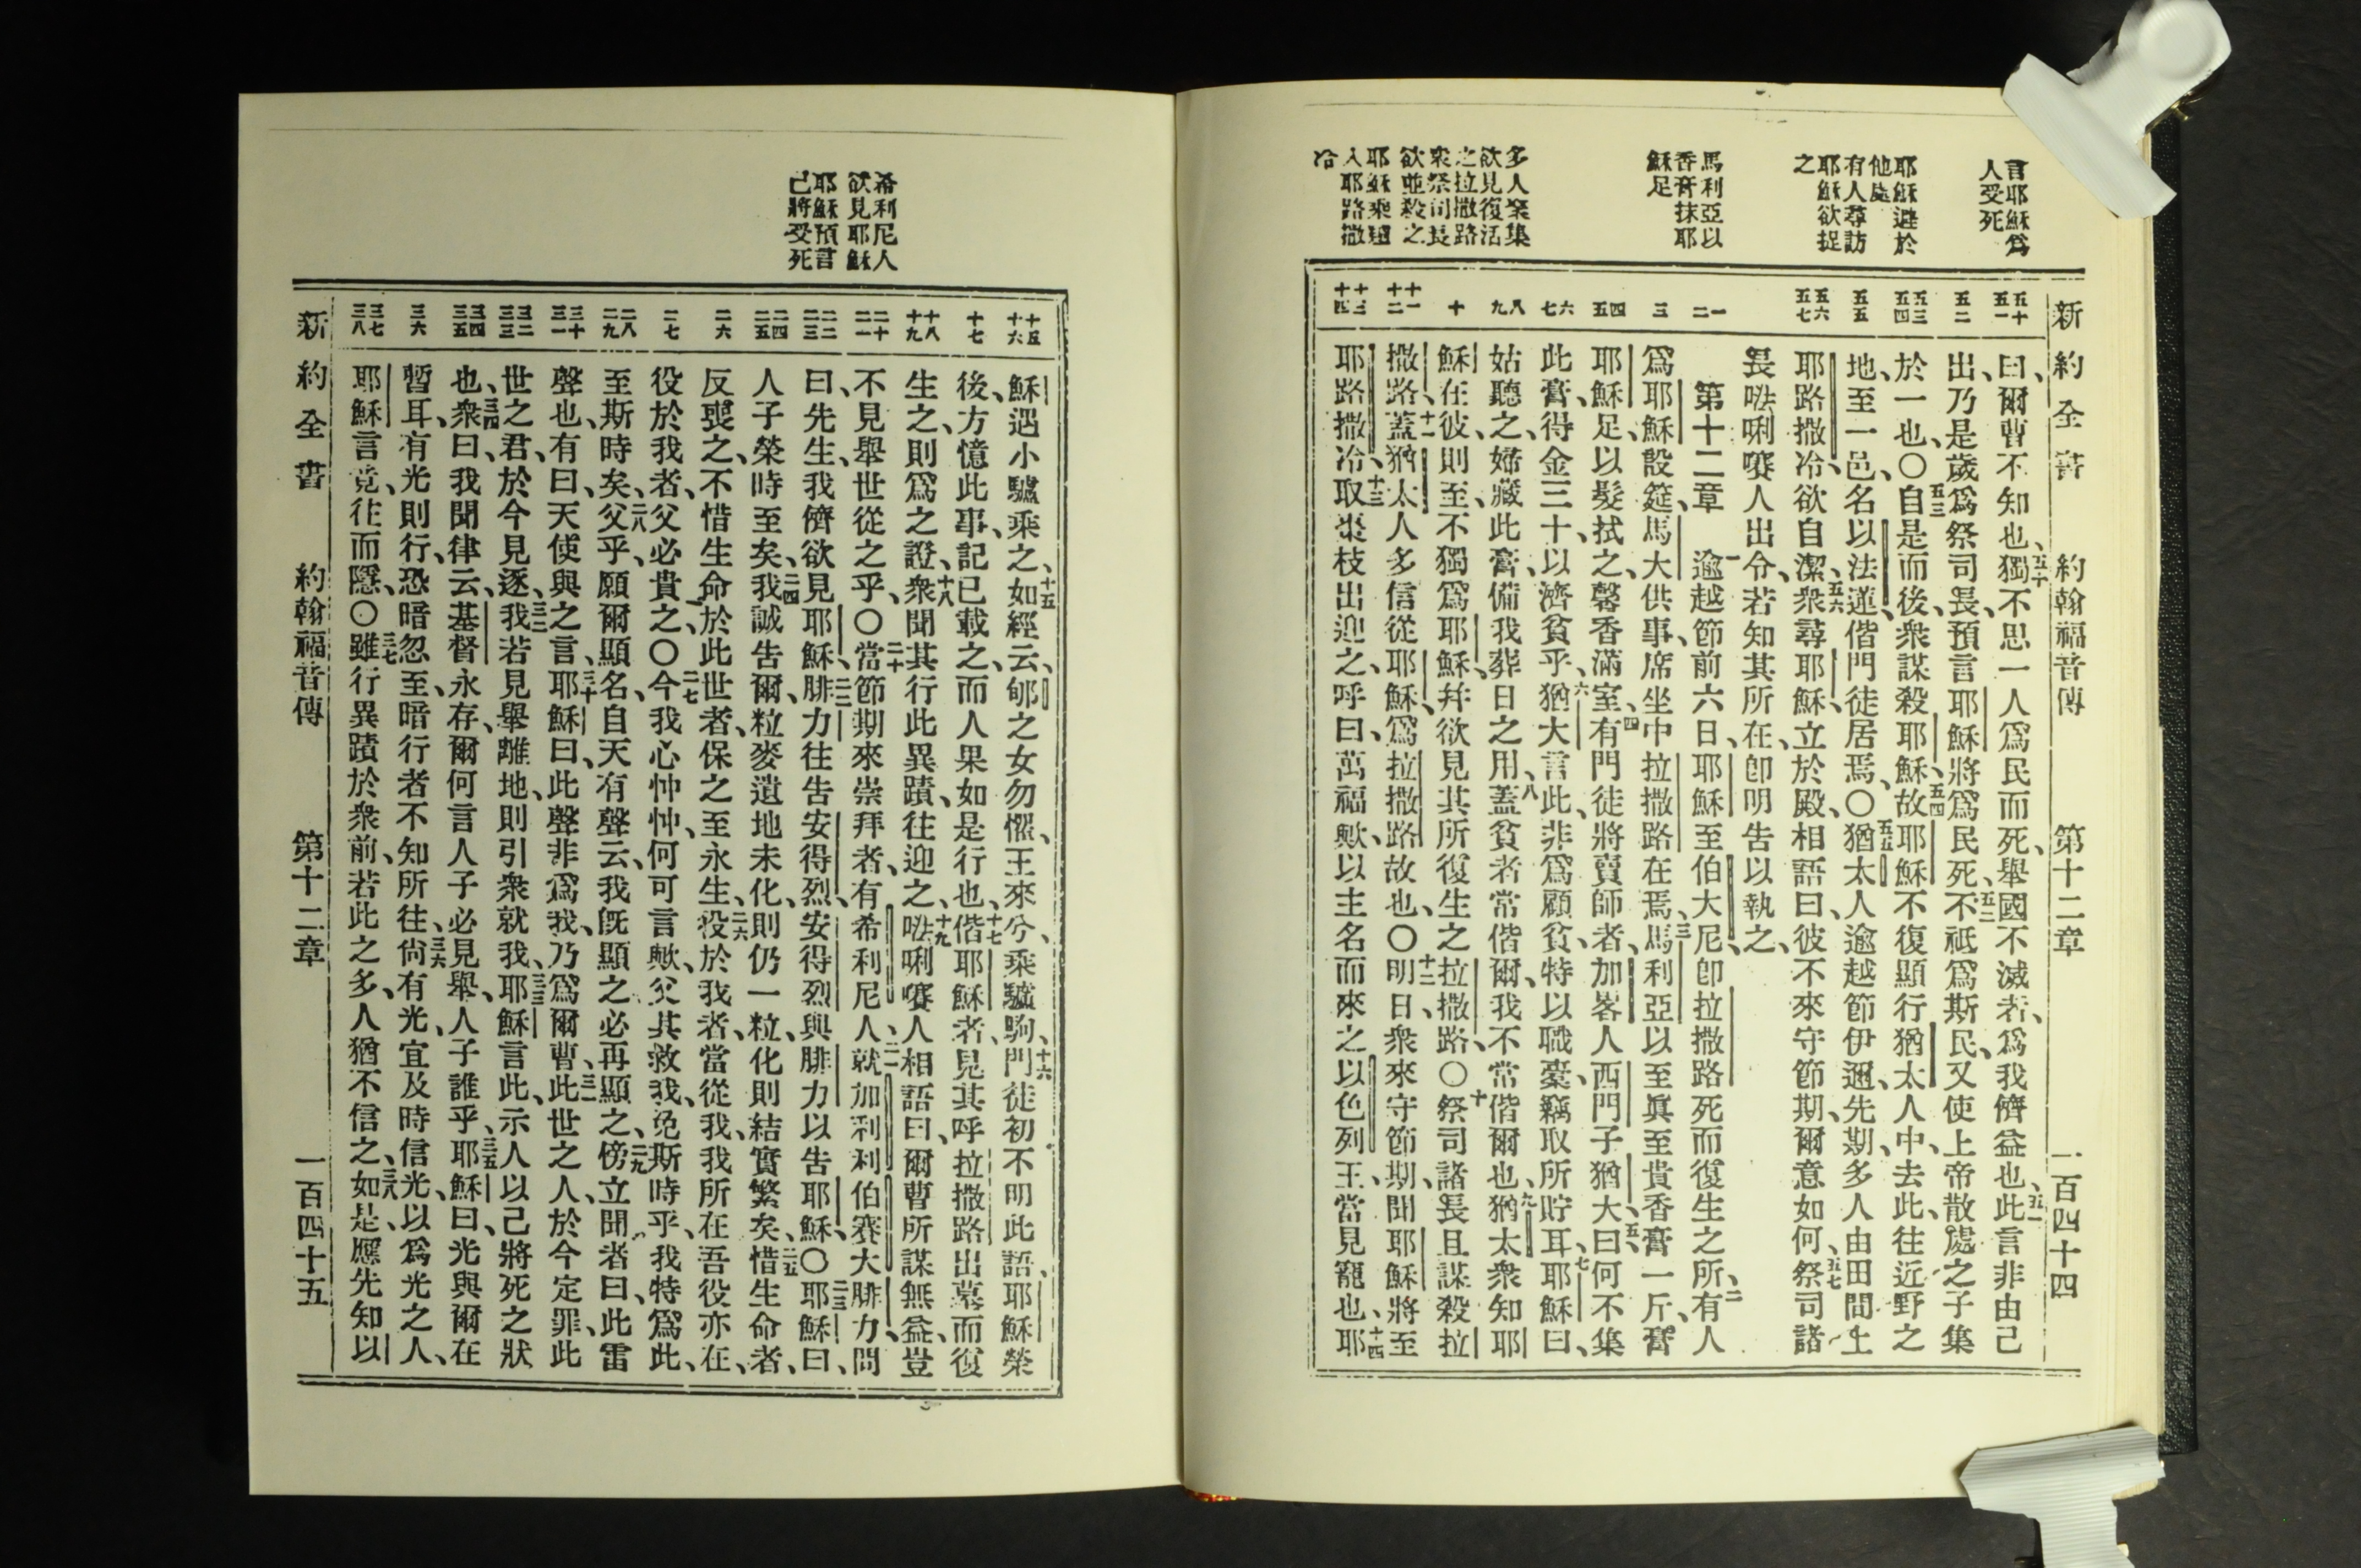 新約全書　約翰福音傳　第十二章　一百四十四
言耶穌爲
人受死
耶穌避於
他處
有人尋訪
耶穌欲捉
之
馬利亞以
香膏抹耶
穌足
多人衆集
欲見復活
之拉撒路
衆祭司長
欲並殺之
耶穌乘驢
入耶路撒
冷
五十 五一
五二
五三 五四
五五
五六 五七
一 二
三
四 五
六 七
八 九
十
十一 十二
十三 十四
曰、爾曹不知也、五十獨不思一人爲民而死、舉國不滅者、爲我儕益也、五一此言非由己
出、乃是歲爲祭司長、預言耶穌將爲民死、五二不祇爲斯民、又使上帝散處之子集
於一也、〇五三自是而後、衆謀殺耶穌、五四故耶穌不復顯行猶太人中、去此、往近野之
地、至一邑、名以法蓮、偕門徒居焉、〇五五猶太人逾越節伊邇、先期、多人由田間上
耶路撒冷、欲自潔、五六衆尋耶穌、立於殿、相語曰、彼不來守節期、爾意如何、五七祭司諸
長𠵽唎賽人出令、若知其所在、卽明告以執之、
第十二章　一逾越節前六日、耶穌至伯大尼、卽拉撒路死而復生之所、二有人
爲耶穌設筵、馬大供事、席坐中拉撒路在焉、三馬利亞以至眞至貴香膏一斤、膏
耶穌足、以髮拭之、馨香滿室、四有門徒將賣師者、加畧人西門子猶大曰、五何不集
此膏、得金三十、以濟貧乎、六猶大言此、非爲顧貧、特以職橐、竊取所貯耳、七耶穌曰、
姑聽之、婦藏此膏、備我葬日之用、八蓋貧者常偕爾、我不常偕爾也、九猶太衆知耶
穌在彼、則至、不獨爲耶穌、幷欲見其所復生之拉撒路、〇十祭司諸長且謀殺拉
撒路、十一蓋猶太人多信從耶穌、爲拉撒路故也、〇十二明日、衆來守節期、聞耶穌將至
耶路撒冷、十三取棗枝出迎之、呼曰、萬福歟、以主名而來之以色列王、當見寵也、十四耶
希利尼人
欲見耶穌
耶穌預言
己將受死
十五 十六
十七
十八 十九
二十 二一
二二 二三
二四 二五
二六
二七
二八 二九
三十 三一
三二 三三
三四 三五
三六
三七 三八
穌遇小驢乘之、十五如經云、郇之女勿懼、王來兮、乘驢駒、十六門徒初不明此語、耶穌榮
後、方憶此事、記已載之、而人果如是行也、十七偕耶穌者、見其呼拉撒路出墓而復
生之、則爲之證、十八衆聞其行此異蹟、往迎之、十九𠵽唎賽人相語曰、爾曹所謀無益、豈
不見舉世從之乎、〇二十當節期來崇拜者、有希利尼人、二一就加利利伯賽大腓力、問
曰、先生、我儕欲見耶穌、二二腓力往告安得烈、安得烈與腓力以告耶穌、〇二三耶穌曰、
人子榮時至矣、二四我誠告爾、粒麥遺地未化、則仍一粒、化則結實繁矣、二五惜生命者、
反喪之、不惜生命於此世者、保之至永生、二六役於我者、當從我、我所在、吾役亦在、
役於我者、父必貴之、〇二七今我心忡忡、何可言歟、父其救我、免斯時乎、我特爲此、
至斯時矣、二八父乎、願爾顯名、自天有聲云、我旣顯之、必再顯之、二九傍立聞者曰、此雷
聲也、有曰、天使與之言、三十耶穌曰、此聲非爲我、乃爲爾曹、三一此世之人、於今定罪、此
世之君、於今見逐、三二我若見舉離地、則引衆就我、三三耶穌言此、示人以己將死之狀
也、三四衆曰、我聞律云、基督永存、爾何言人子必見舉、人子誰乎、三五耶穌曰、光與爾在
暫耳、有光則行、恐暗忽至、暗行者不知所往、三六尚有光、宜及時信光、以爲光之人、
耶穌言竟、往而隱、〇三七雖行異蹟於衆前、若此之多、人猶不信之、三八如是、應先知以
新約全書　約翰福音傳　第十二章　一百四十五